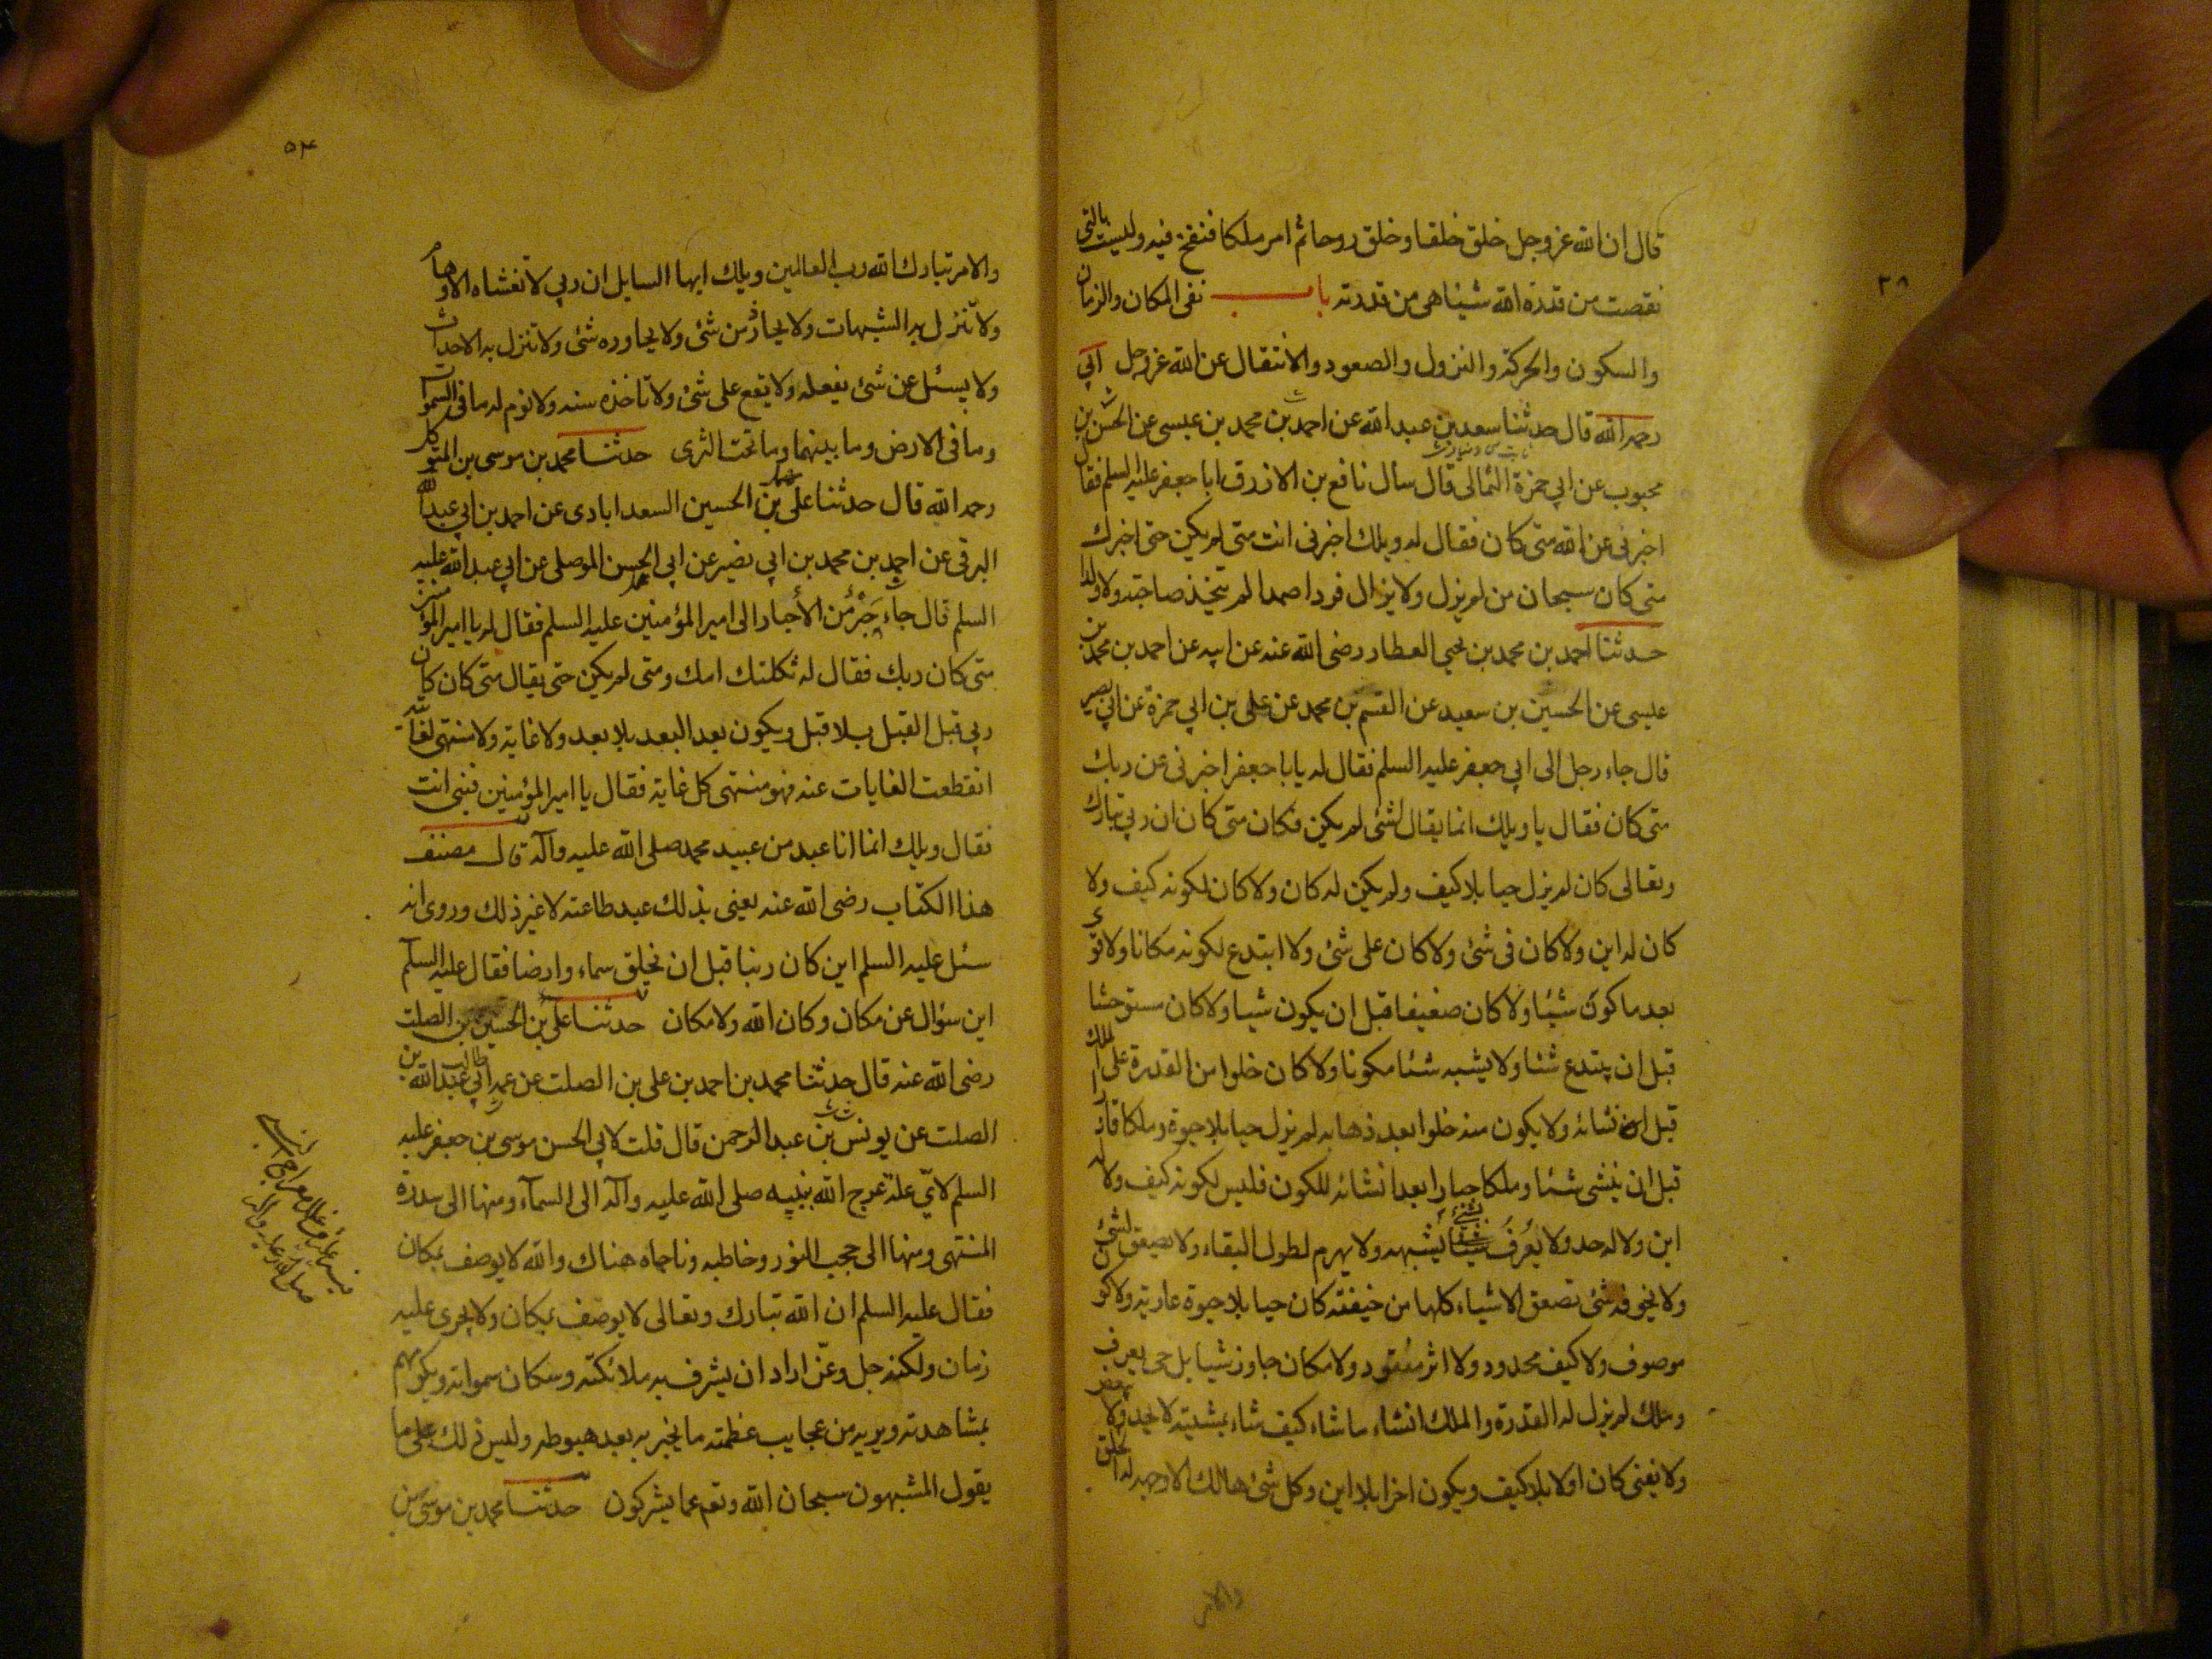 ٢٨
قال ان الله عز وجل خلق خلقا وخلق روحا ثم امر ملكا فنفخ فيه وليست بالتي
نقصت من قدرة الله شيئا هى من قدرته باب نفى المكان والزمان
والسكون والحركة والنزول والصعود والانتقال عن الله عز وجل ابي
رحمه الله قال حدثنا سعد بن عبد الله عن احمد بن محمد بن عيسى عن الحسن بن
محبوب عن ابي حمزة الثمالى قال سال نافع بن الازرق ابا جعفر عليه السلم فقال
اخبرنى عن الله متى كان فقال له ويلك اخبرنى انت متى لم يكن حتى اخبرك
متى كان سبحان من لم يزل ولا يزال فردا صمدا لم يتخذ صاحبة ولا ولدا
حدثنا احمد بن محمد بن يحيى العطار رضى الله عنه عن ابيه عن احمد بن محمد بن
عيسى عن الحسين بن سعيد عن القسم بن محمد عن على بن ابي حمزة عن ابي بصير
قال جاء رجل الى ابي جعفر عليه السلم فقال له يا با جعفر اخبرنى عن ربك
متى كان فقال يا ويلك انما يقال لشئ لم يكن فكان متى كان ان ربي تبارك
وتعالى كان لم يزل حيا بلا كيف ولم يكن له كان ولا كان لكونه كيف ولا
كان له اين ولا كان فى شئ ولا كان على شئ ولا ابتدع لكونه مكانا ولا قوى
بعد ما كون شيئا ولا كان ضعيفا قبل ان يكون شيا ولا كان مستوحشا
قبل ان يبتدع شئا ولا يشبه شئا مكونا ولا كان خلوا من القدرة على الملك
قبل انشائه ولا يكون منه خلوا بعد ذهابه لم يزل حيا بلا حيوة وملكا قادرا
قبل ان ينشى شئا وملكا جبارا بعد انشائه للكون فليس لكونه كيف ولا له
اين ولا له حد ولا يعرف بشئ يشبهه ولا يهرم لطول البقاء ولا يصعق لشئ
ولا يخوفه شئ تصعق الاشياء كلها من خيفته كان حيا بلا حيوة عارية ولا كون
موصوف ولا كيف محدود ولا اثر مقفود ولا مكان جاوز شيا بل حى يعرف
وملك لم يزل له القدرة والملك انشاء ما شاء كيف شاء بمشيته لا يحد ولا يبعض
ولا يفنى كان اولا بلا كيف ويكون اخرا بلا اين وكل شئ هالك الا وجهه له الخلق
والامر
٥٤
والامر تبارك الله رب العالمين ويلك ايها السايل ان ربي لا تغشاه الاوهام
ولا تنزل به الشبهات ولا يجار من شئ ولا يجاوره شئ ولا تنزل به الاحداث
ولا يسئل عن شئ يفعله ولا يقع على شئ ولا تاخذه سنه ولا نوم له ما فى السموات
وما فى الارض وما بينهما وما تحت الثرى حدثنا محمد بن موسى بن المتوكل
رحمه الله قال حدثنا على بن الحسين السعدابادى عن احمد بن ابي عبد الله
البرقى عن احمد بن محمد بن ابي نصير عن ابي الحسن الموصلى عن ابي عبد الله عليه
السلم قال جاء حبر من الأحبار الى امير المؤمنين عليه السلم فقال له يا امير المؤمنين
متى كان ربك فقال له ثكلتك امك ومتى لم يكن حتى يقال متى كان كان
ربي قبل القبل بلا قبل ويكون بعد البعد بلا بعد ولا غاية ولا منتهى لغايته
انقطعت الغايات عنه فهو منتهى كل غاية فقال يا امير المؤمنين فنبى انت
فقال ويلك انما انا عبد من عبيد محمد صلى الله عليه وآله قال مصنف
هذا الكتاب رضى الله عنه يعنى بذلك عبد طاعته لا غير ذلك وروى انه
سئل عليه السلم اين كان ربنا قبل ان يخلق سماء وارضا فقال عليه السلم
اين سؤال عن مكان وكان الله ولا مكان حدثنا على بن الحسين بن الصلت
رضى الله عنه قال حدثنا محمد بن احمد بن على بن الصلت عن عمه ابي طالب عبد الله بن
الصلت عن يونس بن عبد الرحمن قال قلت لابي الحسن موسى بن جعفر عليه
السلم لاىّ علة عرج الله بنبيه صلى الله عليه وآله الى السمآء ومنها الى سدرة
المنتهى ومنها الى حجب النور وخاطبه وناجاه هناك والله لا يوصف بمكان
فقال عليه السلم ان الله تبارك وتعالى لا يوصف بمكان ولا يجرى عليه
زمان ولكنه جل وعزّ اراد ان يشرف به ملائكته وسكان سمواته ويكرمهم
بمشاهدته ويريه من عجايب عظمته ما يخبر به بعد هبوطه وليس ذلك على ما
يقول المشبهون سبحان الله وتعم عما يشركون حدثنا محمد بن موسى بن